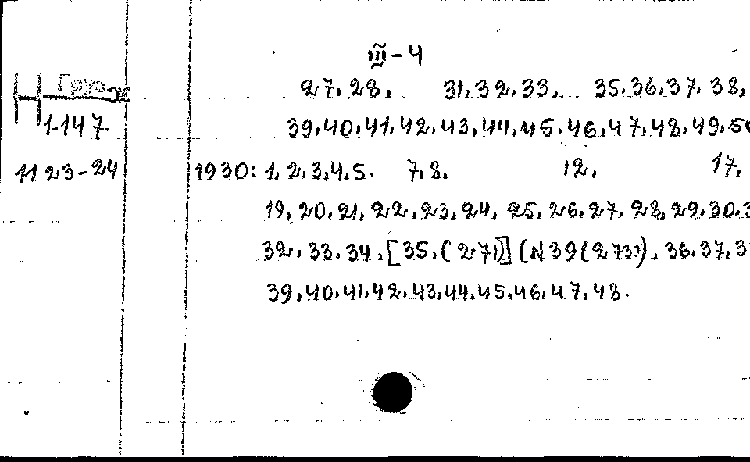 III-4
27, 28, 31, 32, 33, 35, 36, 37, 38,
H
1-147
39, 40, 41, 42, 43, 44, 45, 46, 47, 48, 49, 50
11 23-24
1930: 1, 2, 3, 4, 5. 7, 8. 12, 17,
19, 20, 21, 22, 23, 24, 25, 26, 27, 28, 29, 30, 3
32, 33, 34, [35, (271)] (N 39 (273)), 36, 37, 3
39, 40, 41, 42, 43, 44, 45, 46, 47, 48.